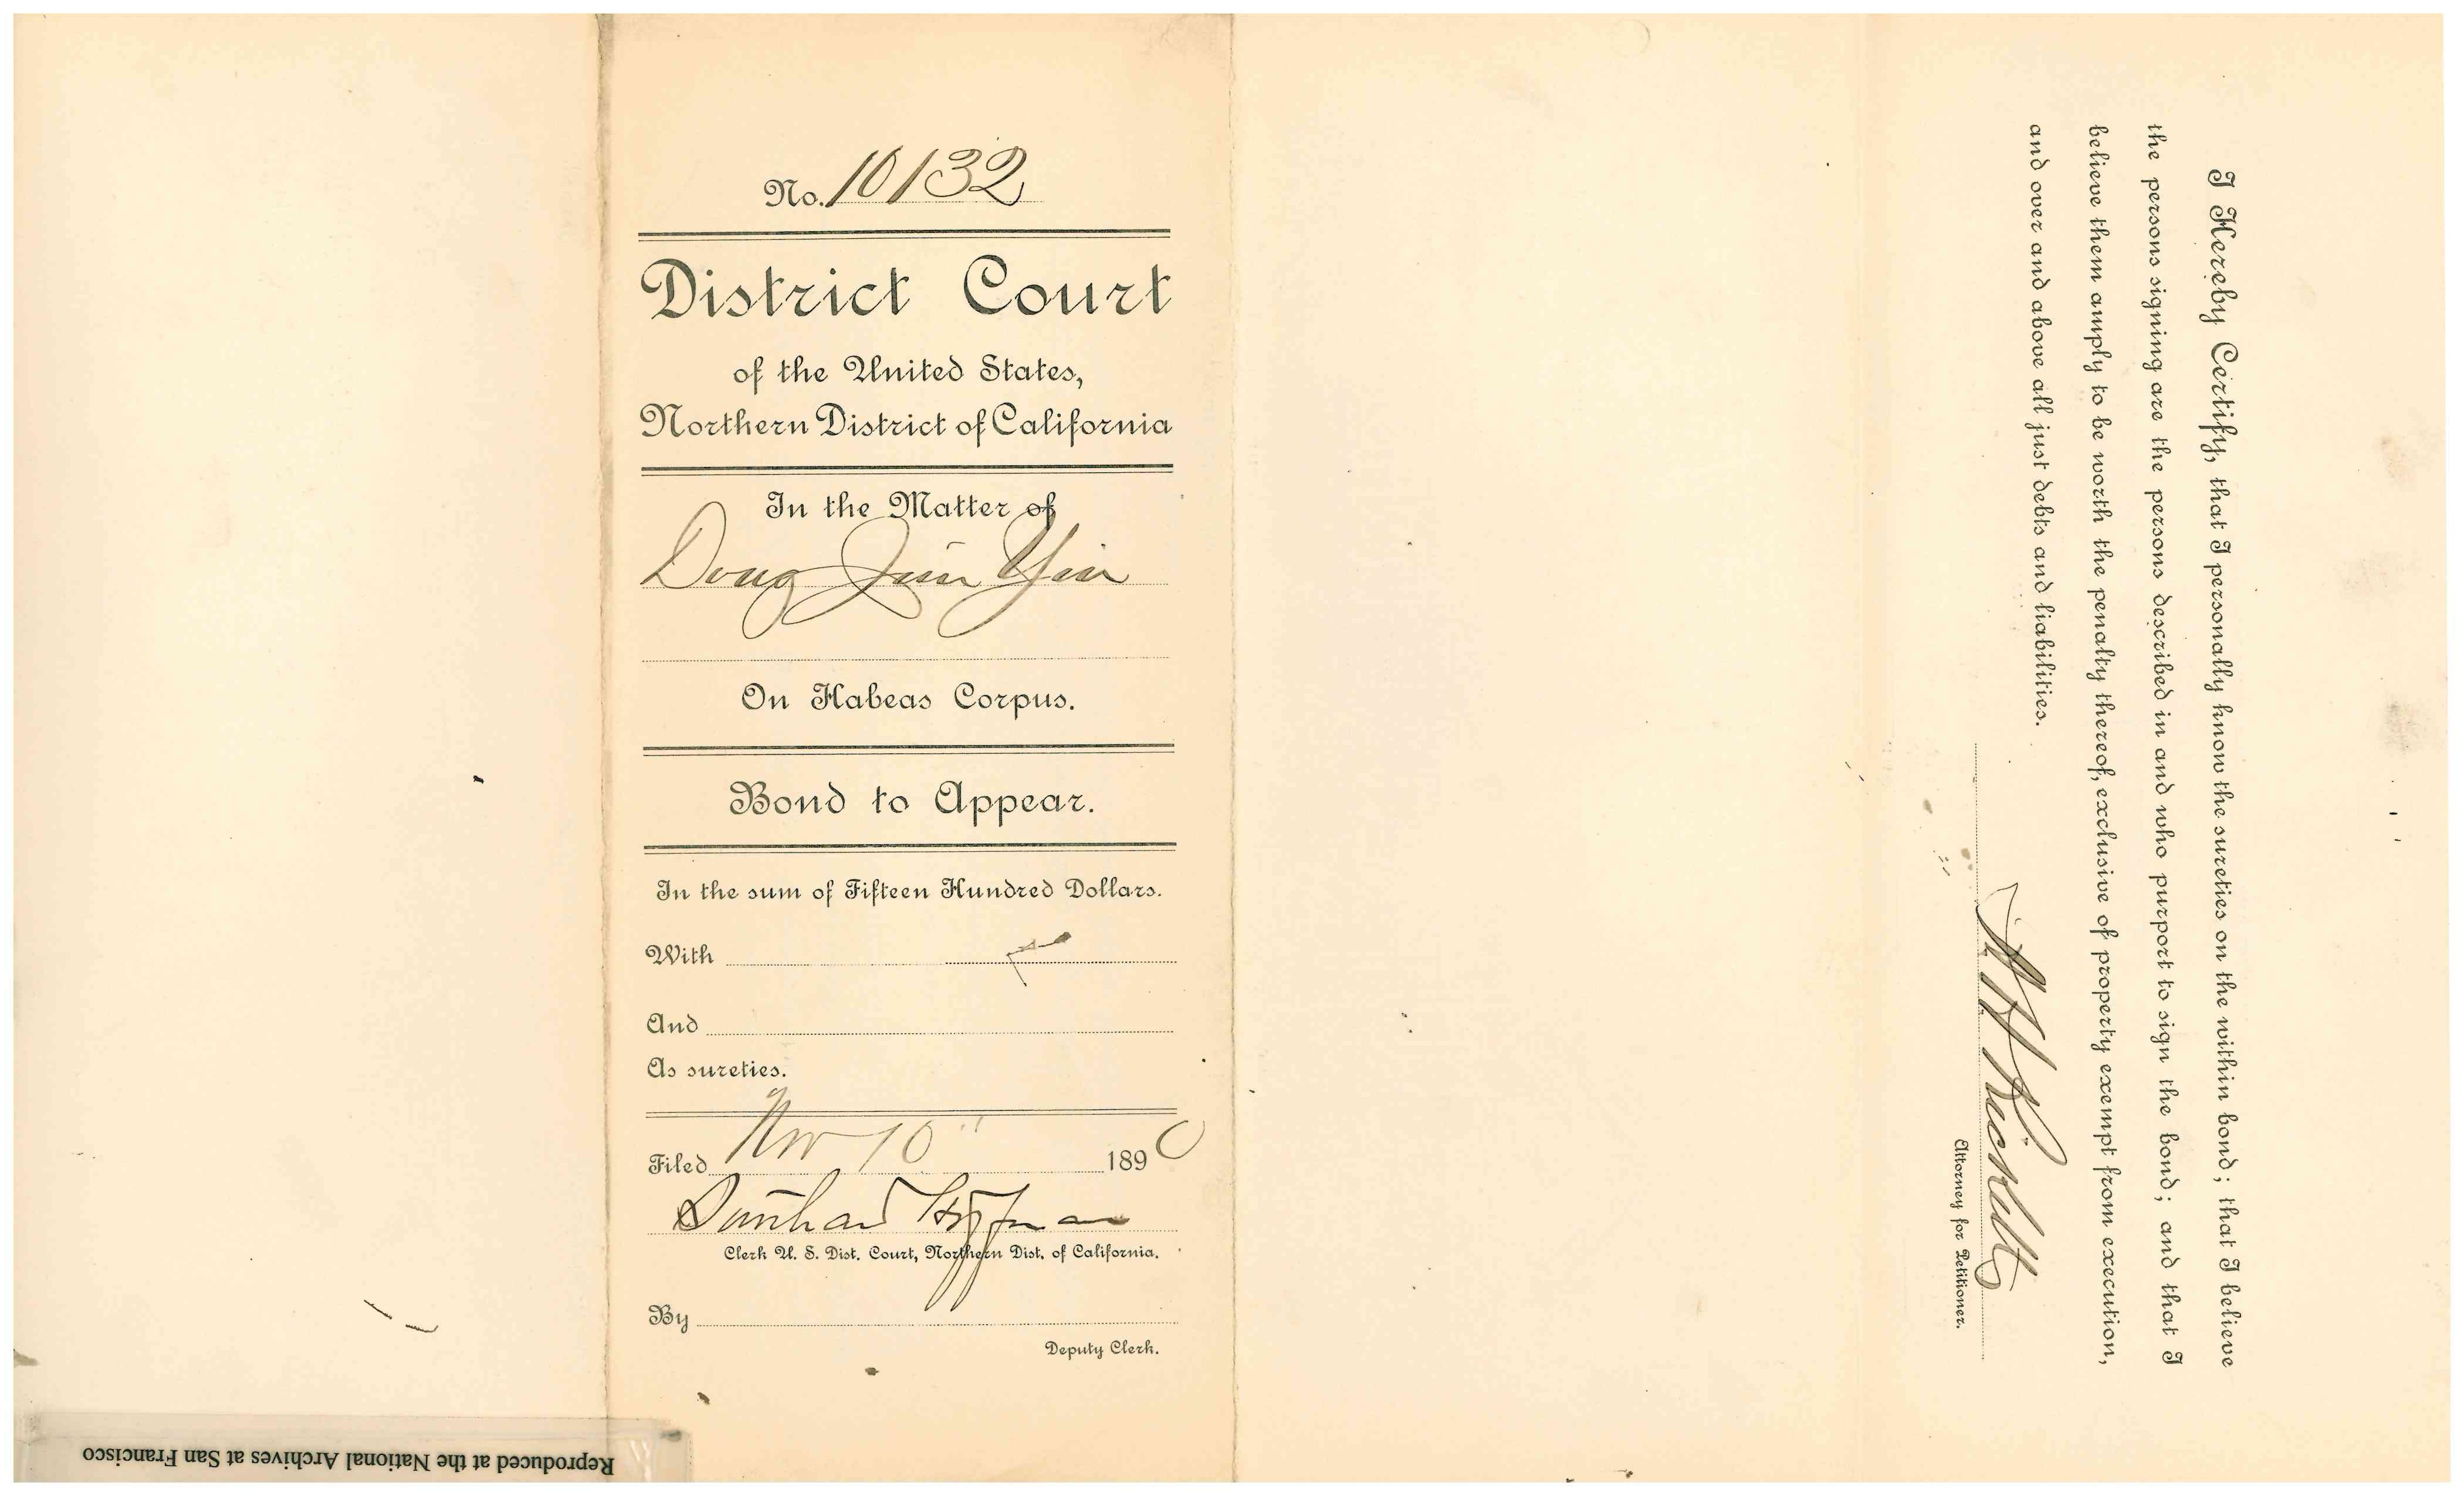 No. 10132
District Court
of the United States,
Northern District of California
In the Matter of
Dong Jim Yin
On Habeas Corpus.
Bond to Appear.
In the sum of Fifteen Hundred Dollars.
With
And
As sureties.
Filed Nov 10" 1890
Southard Hoffman
Clerk U. S. Dist. Court, Northern Dist. of California.
By
Deputy Clerk.
I Hereby Certify, that I personally know the sureties on the within bond; that I believe
the persons signing are the persons described in and who purport to sign the bond; and that I
believe them amply to be worth the penalty thereof, exclusive of property exempt from execution,
and over and above all just debts and liabilities.
Ricketts
Attorney for Petitioner.
Reproduced at the National Archives at San Francisco